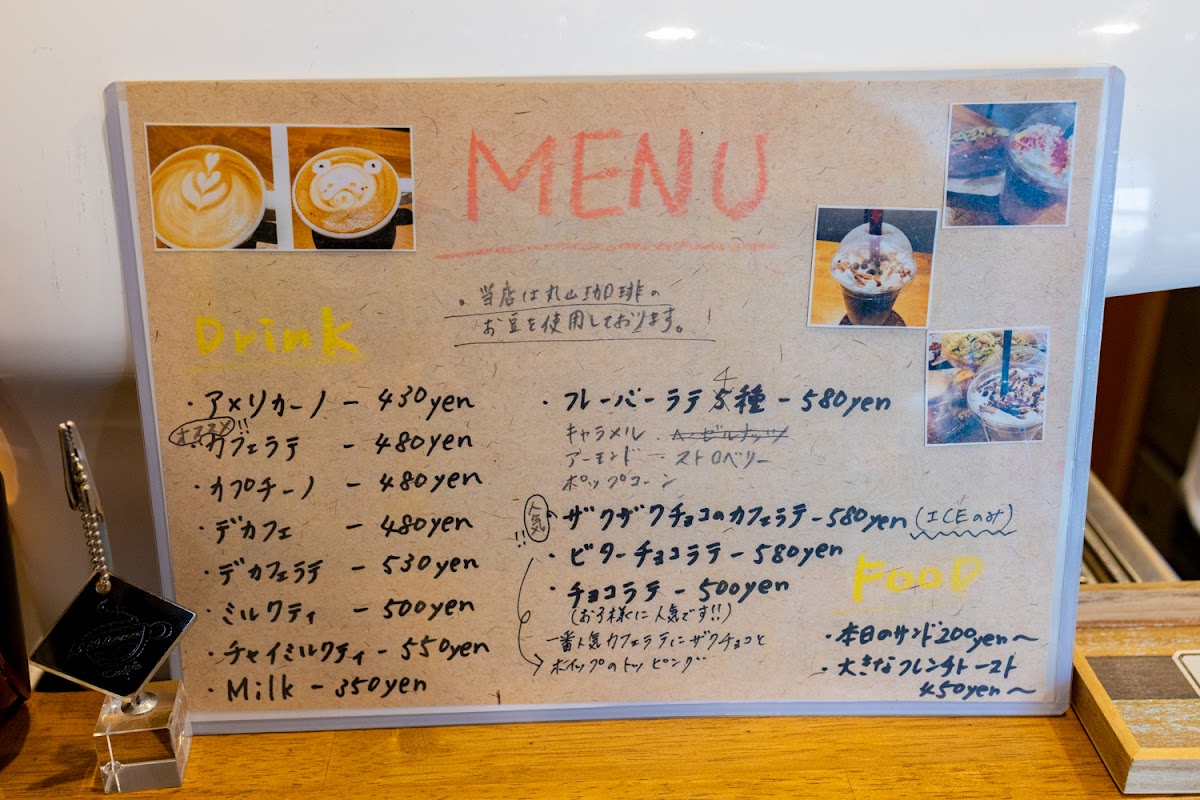 MENU
。当店は丸山珈琲の
お豆を使用しております。
Drink
・アメリカーノ - 430yen
オススメ!!
・カフェラテ - 480yen
・カプチーノ - 480yen
・デカフェ - 480yen
・デカフェラテ - 530yen
・ミルクティ - 500yen
・チャイミルクティ - 550yen
・Milk - 350yen
4
・フレーバーラテ 5種 - 580yen
キャラメル ・ヘーゼルナッツ
アーモンド ・ストロベリー
ポップコーン
人気!!
・ザクザクチョコのカフェラテ - 580yen (ICEのみ)
・ビターチョコラテ - 580yen
・チョコラテ - 500yen
(お子様に人気です!!)
一番人気カフェラテにザクチョコと
ホイップのトッピング
FooD
・本日のサンド 200yen〜
・大きなフレンチトースト
450yen〜